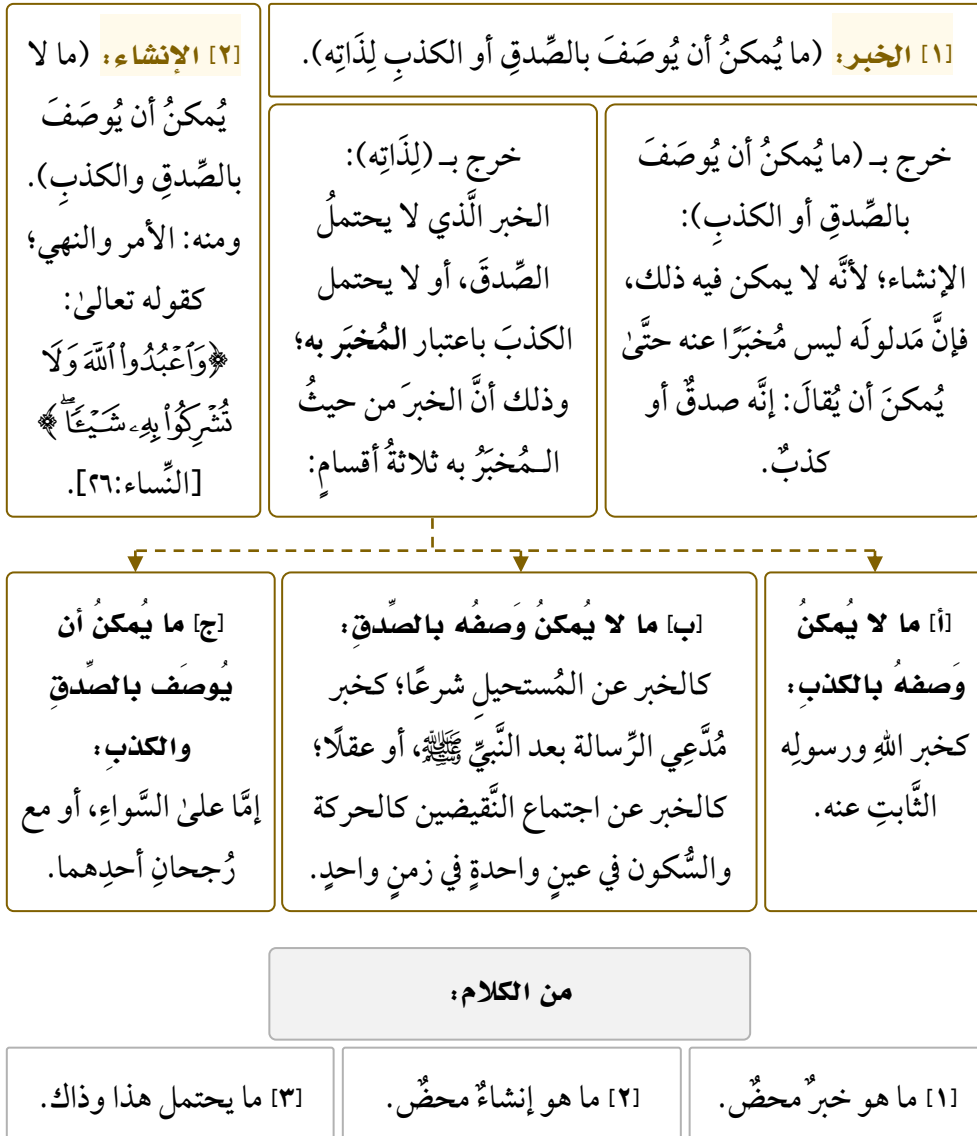 [١] الخبر: (ما يُمكنُ أن يُوصَفَ بالصِّدقِ أو الكذبِ لِذَاتِه).
خرج بـ (ما يُمكنُ أن يُوصَفَ
بالصِّدقِ أو الكذبِ):
الإنشاء؛ لأنَّه لا يمكن فيه ذلك،
فإنَّ مَدلولَه ليس مُخبَرًا عنه حتَّىٰ
يُمكنَ أن يُقالَ: إنَّه صدقٌ أو
كذبٌ.
خرج بـ (لِذَاتِه):
الخبر الَّذي لا يحتملُ
الصِّدقَ، أو لا يحتمل
الكذبَ باعتبار المُخبَر به؛
وذلك أنَّ الخبرَ من حيثُ
الـمُخبَرُ به ثلاثةُ أقسامٍ:
[٢] الإنشاء: (ما لا
يُمكنُ أن يُوصَفَ
بالصِّدقِ والكذبِ).
ومنه: الأمر والنهي؛
كقوله تعالىٰ:
﴿وَٱعۡبُدُواْ ٱللَّهَ وَلَا
تُشۡرِكُواْ بِهِۦ شَيۡـًٔاۖ﴾
[النِّساء:٢٦].
[أ] ما لا يُمكنُ
وَصفهُ بالكذبِ:
كخبر اللهِ ورسولِه
الثَّابتِ عنه.
[ب] ما لا يُمكنُ وَصفُه بالصِّدقِ:
كالخبر عن المُستحيلِ شرعًا؛ كخبر
مُدَّعِي الرِّسالة بعد النَّبيِّ ﷺ، أو عقلًا؛
كالخبر عن اجتماع النَّقيضين كالحركة
والسُّكون في عينٍ واحدةٍ في زمنٍ واحدٍ.
[ج] ما يُمكنُ أن
يُوصَف بالصِّدقِ
والكذبِ:
إمَّا علىٰ السَّواءِ، أو مع
رُجحانِ أحدِهما.
من الكلام:
[١] ما هو خبرٌ محضٌ.
[٢] ما هو إنشاءٌ محضٌ.
[٣] ما يحتمل هذا وذاك.